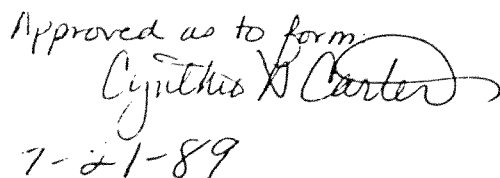 Approved as to form.
Cynthia D Carter
7-21-89